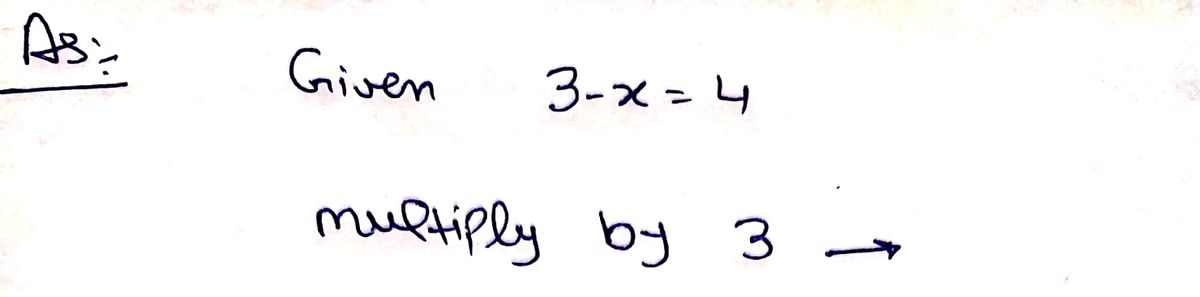 As:-
Given 3-x = 4
multiply by 3 →